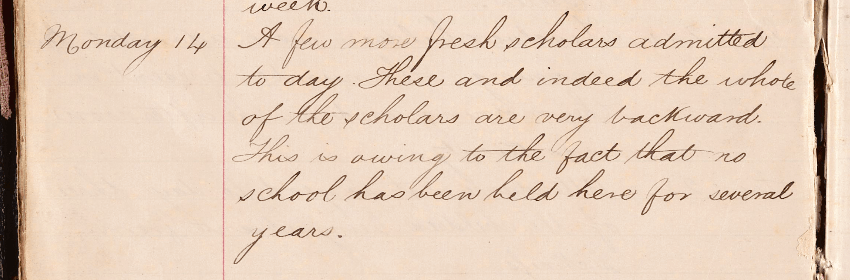 week.
Monday 14 A few more fresh scholars admitted
to day. These and indeed the whole
of the scholars are very backward.
This is owing to the fact that no
school has been held here for several
years.